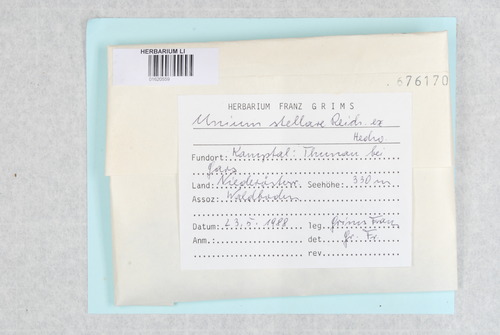 HERBARIUM LI
676170
HERBARIUM FRANZ GRIMS
Mnium stellare Reich. ex
Hedw.
Fundort: Kamptal: Thunau bei
Gars
Land: Niederösterr. Seehöhe: 330 m
Assoz: Waldboden
Datum: 23. 5. 1988 leg. Grims Franz
Anm.: det. Gr. Fr.
rev.